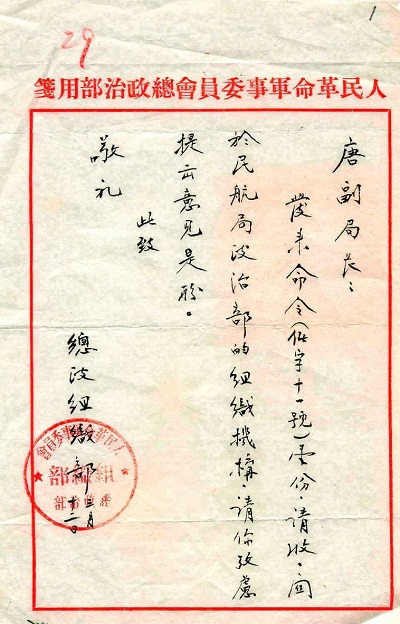 1
29
人民革命軍事委員會總政治部用箋
唐副局长：
發来命令(任字十一號)壹份，請收，関
於民航局政治部的組織機構，請你攷慮
提出意見是盼。
此致
敬礼
總政組織部
三月
十二日
人民革命軍事委員會
總政治部
組織部